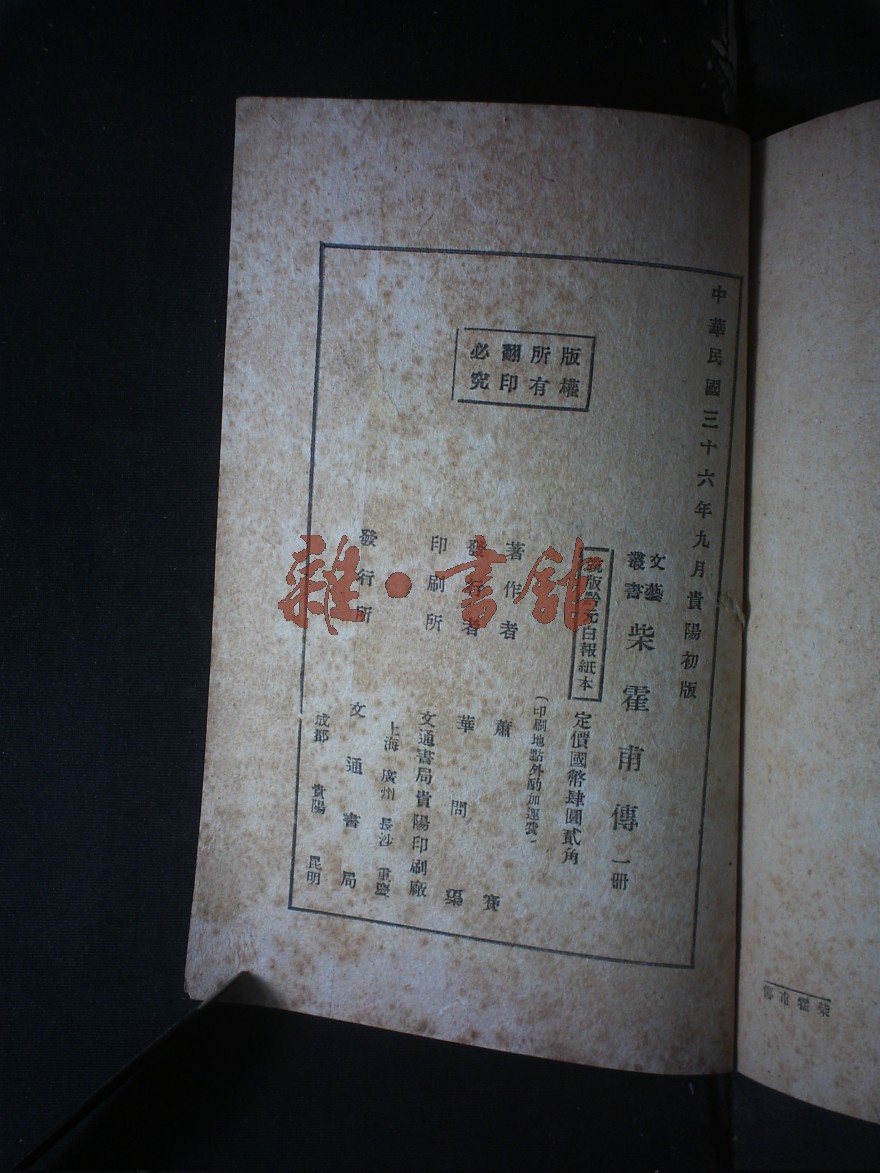 中華民國三十六年九月貴陽初版
文藝叢書 柴霍甫傳 一冊
版黔元白報紙本 定價國幣肆圓貳角
(印刷地點外酌加運費)
著作者 蕭賽
發行者 華問渠
印刷所 文通書局貴陽印刷廠
發行所 文通書局
上海 廣州 長沙 重慶
成都 貴陽 昆明
版權所有
翻印必究
雜·書館
柴霍甫傳